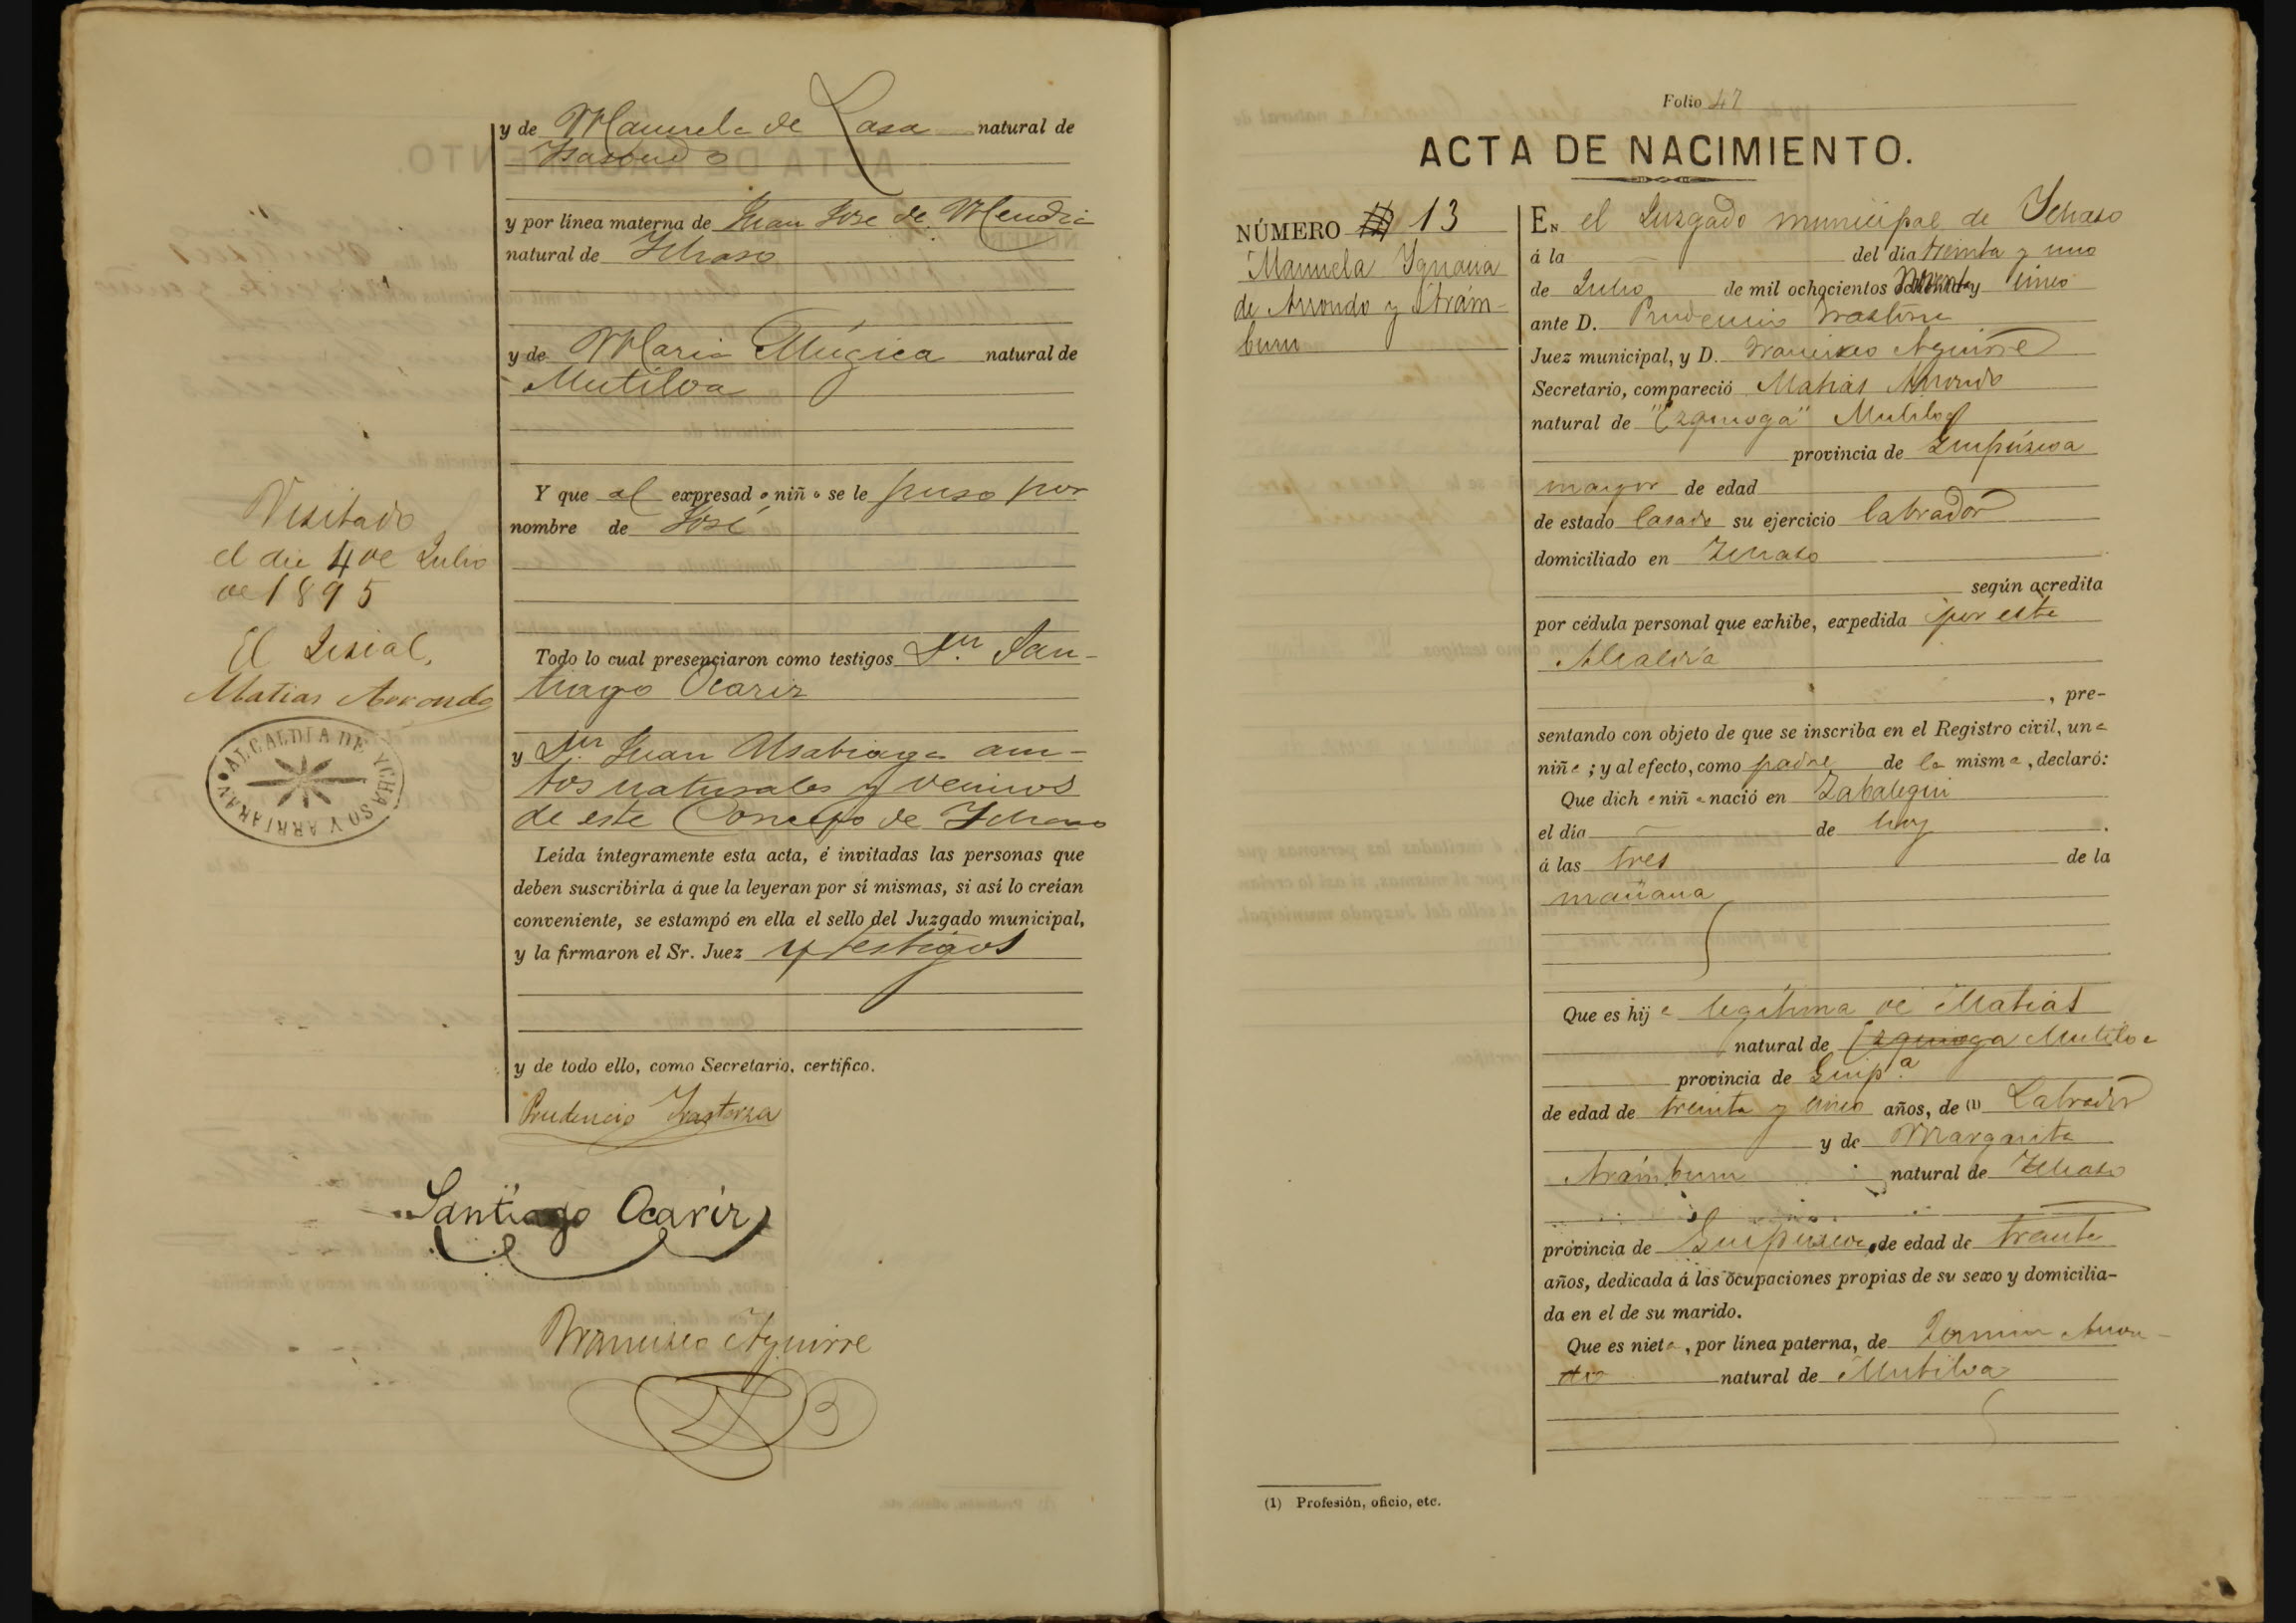 y de Manuela de Lasa natural de
Isasondo
y por línea materna de Juan José de Mendia
natural de Ichaso
y de Maria Múgica natural de
Mutiloa
Y que al expresado niño se le puso por
nombre de José
Todo lo cual presenciaron como testigos Dn. San-
tiago Ocariz
y Dn. Juan Alsabiaga am-
bos naturales y vecinos
de este Concejo de Ichaso
Leída íntegramente esta acta, é invitadas las personas que
deben suscribirla á que la leyeran por sí mismas, si así lo creían
conveniente, se estampó en ella el sello del Juzgado municipal,
y la firmaron el Sr. Juez y testigos
y de todo ello, como Secretario, certifico.
Prudencio Irastorza
Santiago Ocariz
Francisco Aguirre
Visitado
el dia 4 de Julio
de 1895
El
Matias Arrondo
ALCALDIA DE YCHASO Y ARRIARAN
Folio 47
ACTA DE NACIMIENTO.
NÚMERO 13
Manuela Ygnacia
de Arrondo y Arám-
buru
EN el Juzgado municipal de Ichaso
á la del día treinta y uno
de Julio de mil ochocientos noventa y cinco
ante D. Prudencio Irastorza
Juez municipal, y D. Francisco Aguirre
Secretario, compareció Matias Arrondo
natural de "Ezquioga" Mutiloa
provincia de Guipúzcoa
mayor de edad
de estado casado su ejercicio labrador
domiciliado en Ichaso
según acredita
por cédula personal que exhibe, expedida por esta
Alcaldía
, pre-
sentando con objeto de que se inscriba en el Registro civil, una
niña; y al efecto, como padre de la misma, declaró:
Que dicha niña nació en Zabalegui
el día de hoy
á las tres de la
mañana
Que es hija legítima de Matias
natural de Ezquioga Mutiloa
provincia de Guip.a
de edad de treinta y cinco años, de (1) Labrador
y de Margarita
Arámburu natural de Ichaso
provincia de Guipuzcoa, de edad de treinta
años, dedicada á las ocupaciones propias de su sexo y domicilia-
da en el de su marido.
Que es nieta, por línea paterna, de Fermin Arron-
do natural de Mutiloa
(1) Profesión, oficio, etc.